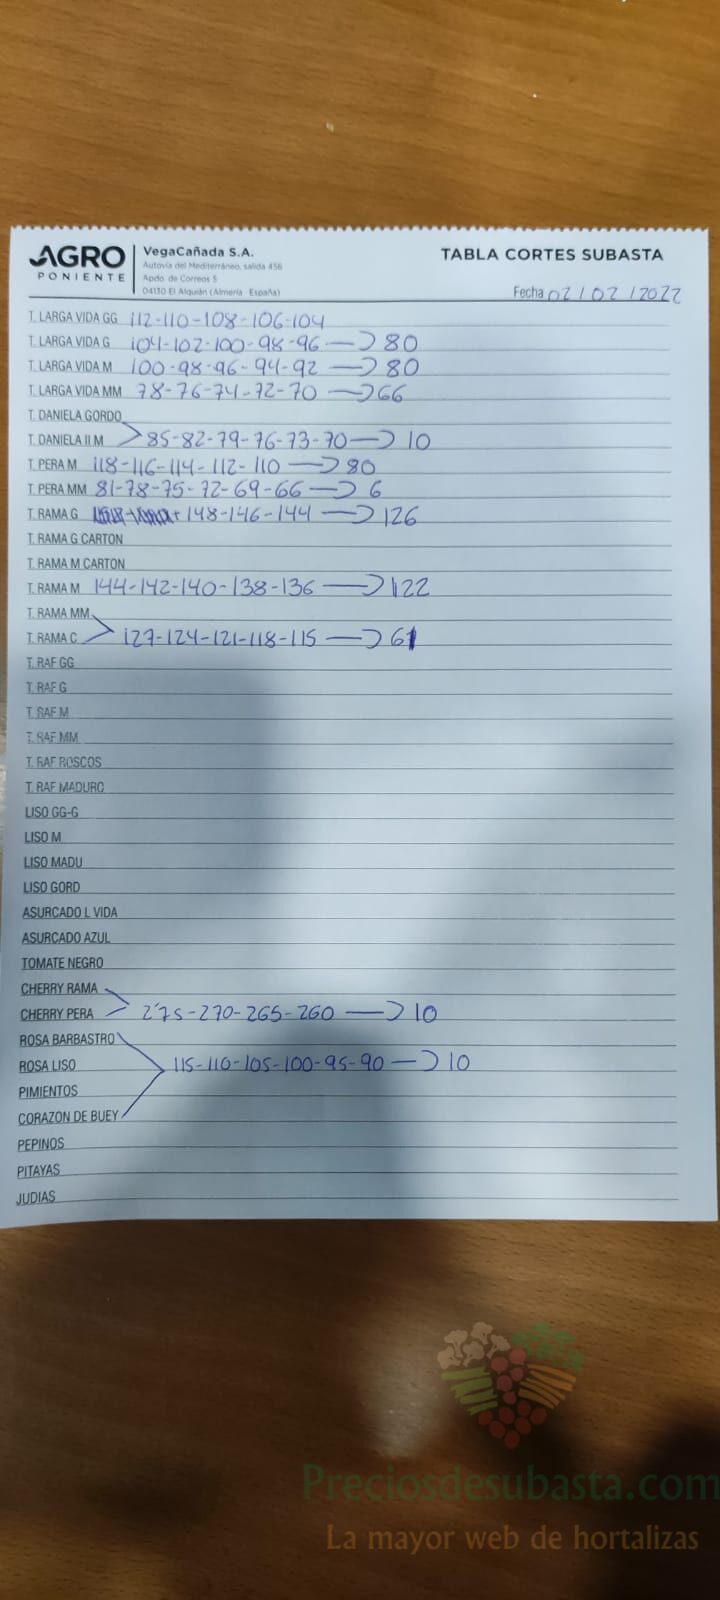 AGRO
PONIENTE
VegaCañada S.A.
Autovía del Mediterráneo, salida 456
Apdo. de Correos 5
04130 El Alquián (Almería - España)
TABLA CORTES SUBASTA
Fecha 02/02/2022
T. LARGA VIDA GG 112-110-108-106-104
T. LARGA VIDA G 104-102-100-98-96 → 80
T. LARGA VIDA M 100-98-96-94-92 → 80
T. LARGA VIDA MM 78-76-74-72-70 → 66
T. DANIELA GORDO
T. DANIELA II M 85-82-79-76-73-70 → 10
T. PERA M 118-116-114-112-110 → 80
T. PERA MM 81-78-75-72-69-66 → 6
T. RAMA G 148-146-144 → 126
T. RAMA G CARTON
T. RAMA M CARTON
T. RAMA M 144-142-140-138-136 → 122
T. RAMA MM
T. RAMA C 127-124-121-118-115 → 61
T. RAF GG
T. RAF G
T. RAF M
T. RAF MM
T. RAF ROSCOS
T. RAF MADURO
LISO GG-G
LISO M
LISO MADU
LISO GORD
ASURCADO L VIDA
ASURCADO AZUL
TOMATE NEGRO
CHERRY RAMA
CHERRY PERA 275-270-265-260 → 10
ROSA BARBASTRO
ROSA LISO 115-110-105-100-95-90 → 10
PIMIENTOS
CORAZON DE BUEY
PEPINOS
PITAYAS
JUDIAS
Preciosdesubasta.com
La mayor web de hortalizas